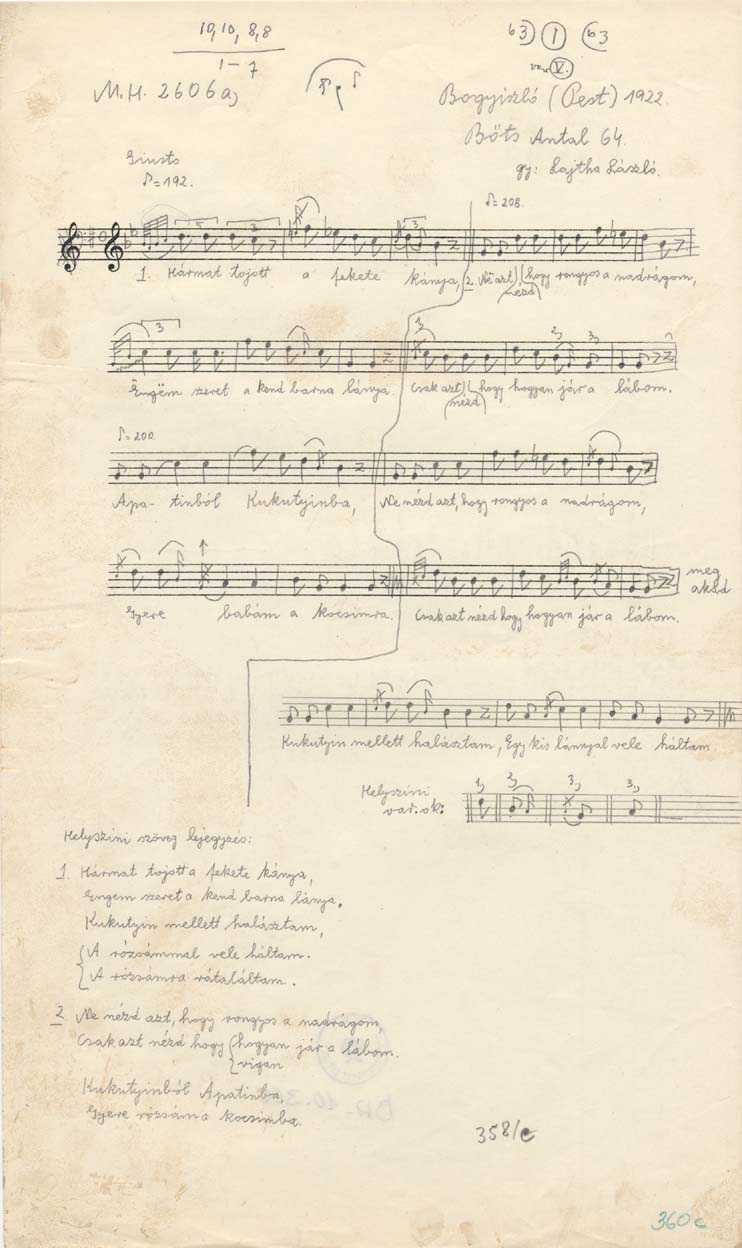 10, 10, 8, 8
1-7
b3 I b3
var V.
M.H. 2606a)
Bogyiszló (Pest) 1922.
Bőts Antal 64.
gy: Lajtha László.
Giusto
♪=192.
♪=208.
1. Hármat tojott a fekete kánya, 2. Ne azt, hogy rongyos a nadrágom,
nézd
Engëm szeret a kend barna lánya. Csak azt hogy hogyan jár a lábom.
nézd
♪=200.
Apa-tinból Kukutyinba, Ne nézd azt, hogy rongyos a nadrágom,
Gyere babám a kocsimra. Csak azt nézd hogy hogyan jár a lábom.
meg
akad
Kukutyin mellett halásztam, Egy kis lánnyal vele háltam.
Helyszini
var.ok:
1, 2, 3, 3,
Helyszini szöveg lejegyzés:
1. Hármat tojott a fekete kánya,
Engem szeret a kend barna lánya.
Kukutyin mellett halásztam,
A rózsámmal vele háltam.
A rózsámra rátaláltam.
2. Ne nézd azt, hogy rongyos a nadrágom,
Csak azt nézd hogy hogyan jár a lábom.
vigan
Kukutyinból Apatinba,
Gyere rózsám a kocsimba.
358/e
360c